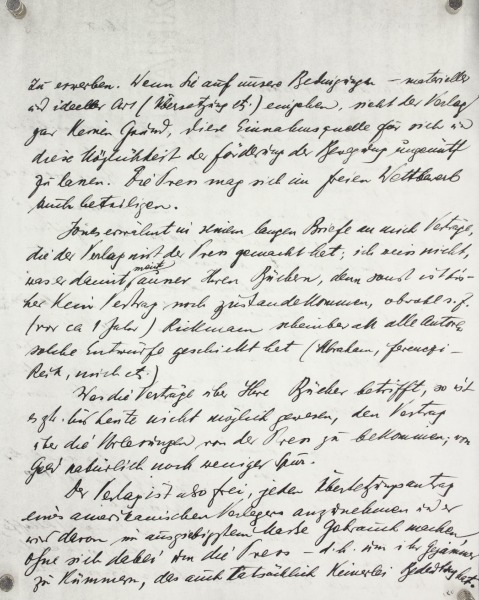 zu erwerben. Wenn Sie auf unsere Bedingungen – materieller
und ideeller Art (Übersetzung etc.) eingehen, sieht der Verlag
gar keinen Grund, diese Einnahmsquelle für sich und
diese Möglichkeit der Förderung der Bewegung ungenützt
zu lassen. Die Press mag sich im freien Wettbewerb
auch beteiligen.
Jones erwähnt in seinem langen Briefe an mich Verträge,
die der Verlag mit der Press gemacht hat; ich weiss nicht,
was er damit meint ausser Ihren Büchern, denn sonst ist bis-
her kein Vertrag noch zustandekommen, obwohl s.Z.
(vor ca 1 Jahr) Rickmann scheinbar an alle Autoren
solche Entwürfe geschickt hat (Abraham, Ferenczi –
Reik, mich etc.)
Was die Verträge über Ihre Bücher betrifft, so ist
es bis heute nicht möglich gewesen, den Vertrag
über die Vorlesungen von der Press zu bekommen; von
Geld natürlich noch weniger Spur.
Der Verlag ist also frei, jeden Übersetzungsantrag
eines amerikanischen Verlegers anzunehmen und er
wird davon im ausgiebigstem Masse Gebrauch machen,
ohne sich dabei um die Press – d.h. um ihr Gejammer
zu kümmern, das auch tatsächlich keinerlei Bedeutung hat.